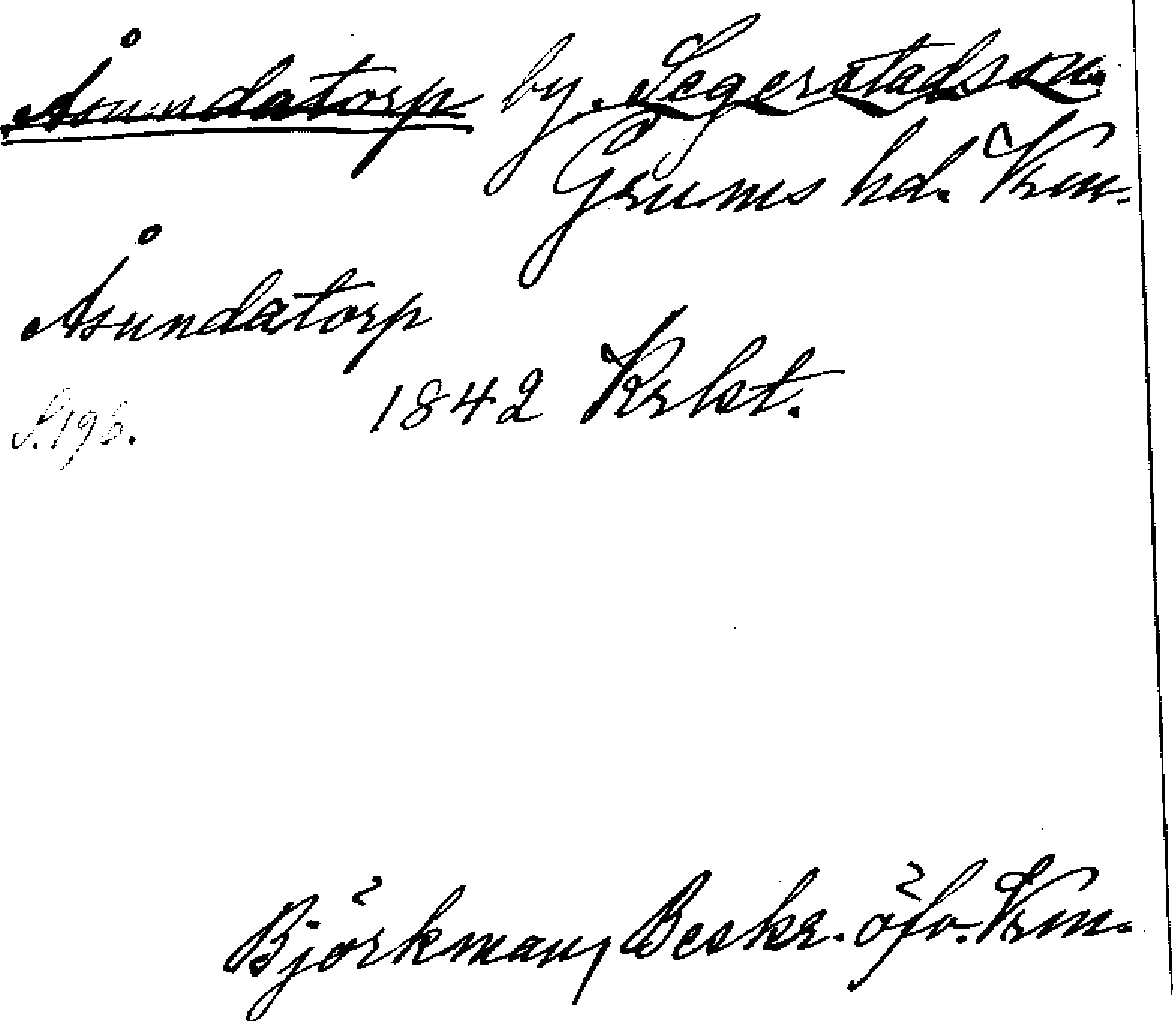 Åsundatorp by. Segerstads sn.
Grums hd. Vrm.
Åsundatorp
1842 Krkt.
S. 196.
Björkman, Beskr. öfv. Vrm.